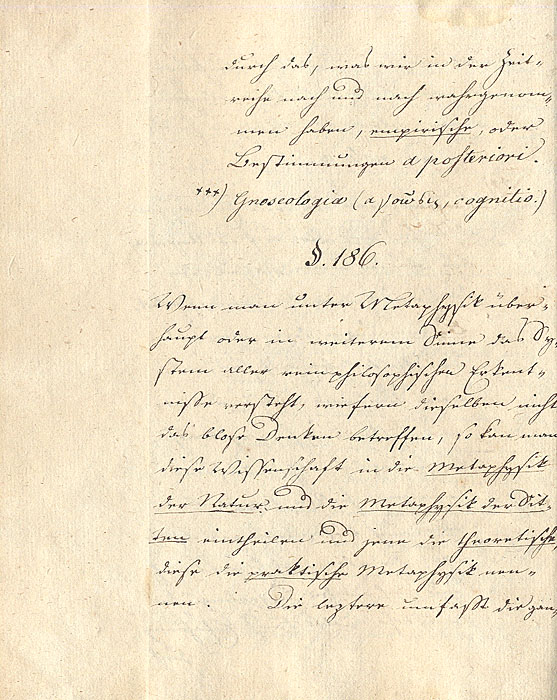 durch das, was wir in der Zeit-
reihe nach und nach wahrgenom-
men haben, empirische, oder
Bestimmungen a posteriori.
***) Gnoseologia (a γνῶσις, cognitio.)
§. 186.
Wenn man unter Metaphysik über-
haupt oder in weiterem Sinne das Sy-
stem aller reinphilosophischen Erkent-
nisse versteht, wiefern dieselben nicht
das blose Denken betreffen, so kan man
diese Wissenschaft in die Metaphysik
der Natur und die Metaphysik der Sit-
ten eintheilen und jene die theoretische
diese die praktische Metaphysik nen-
nen. Die leztere umfaßt die gan-